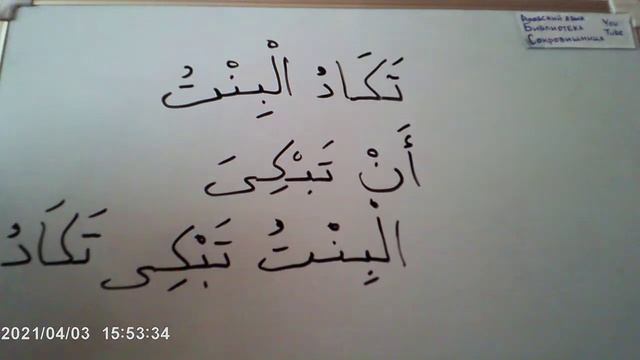 Арабский язык You
Библиотека Tube
Сокровищница
تَكَادُ الْبِنْتُ
أَنْ تَبْكِىَ
الْبِنْتُ تَبْكِى تَكَادُ
2021/04/03 15:53:34